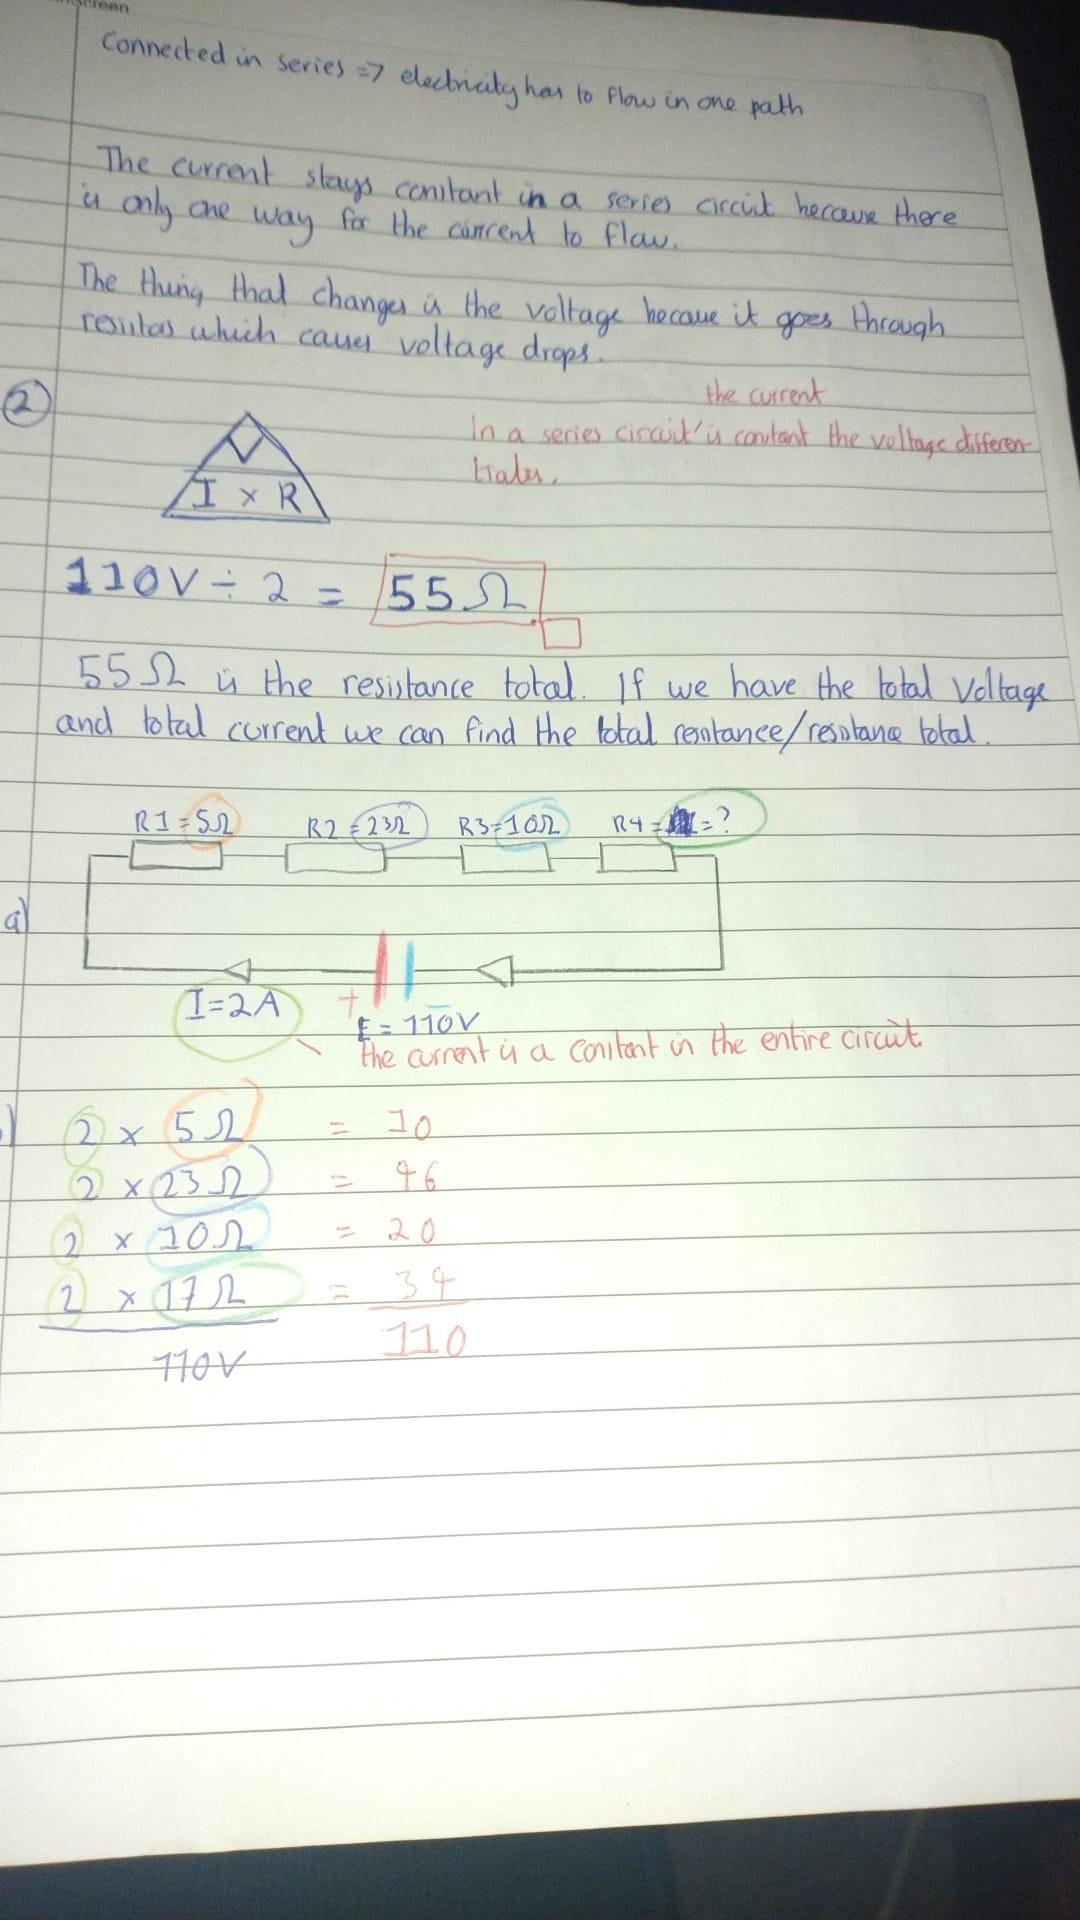 screen
Connected in series => electricity has to flow in one path
The current stays constant in a series circuit because there
is only one way for the current to flow.
The thing that changes is the voltage because it goes through
resistors which causes voltage drops.
2
the current
In a series circuit is constant the voltage differen-
tiates.
V
I x R
110V ÷ 2 = 55Ω
55Ω is the resistance total. If we have the total Voltage
and total current we can find the total resistance/resistance total.
R1=5Ω R2=23Ω R3=10Ω R4= =?
a)
I=2A
+ -
E = 110V
the current is a constant in the entire circuit.
2 x 5Ω = 10
2 x 23Ω = 46
2 x 10Ω = 20
2 x 17Ω = 34
110V 110